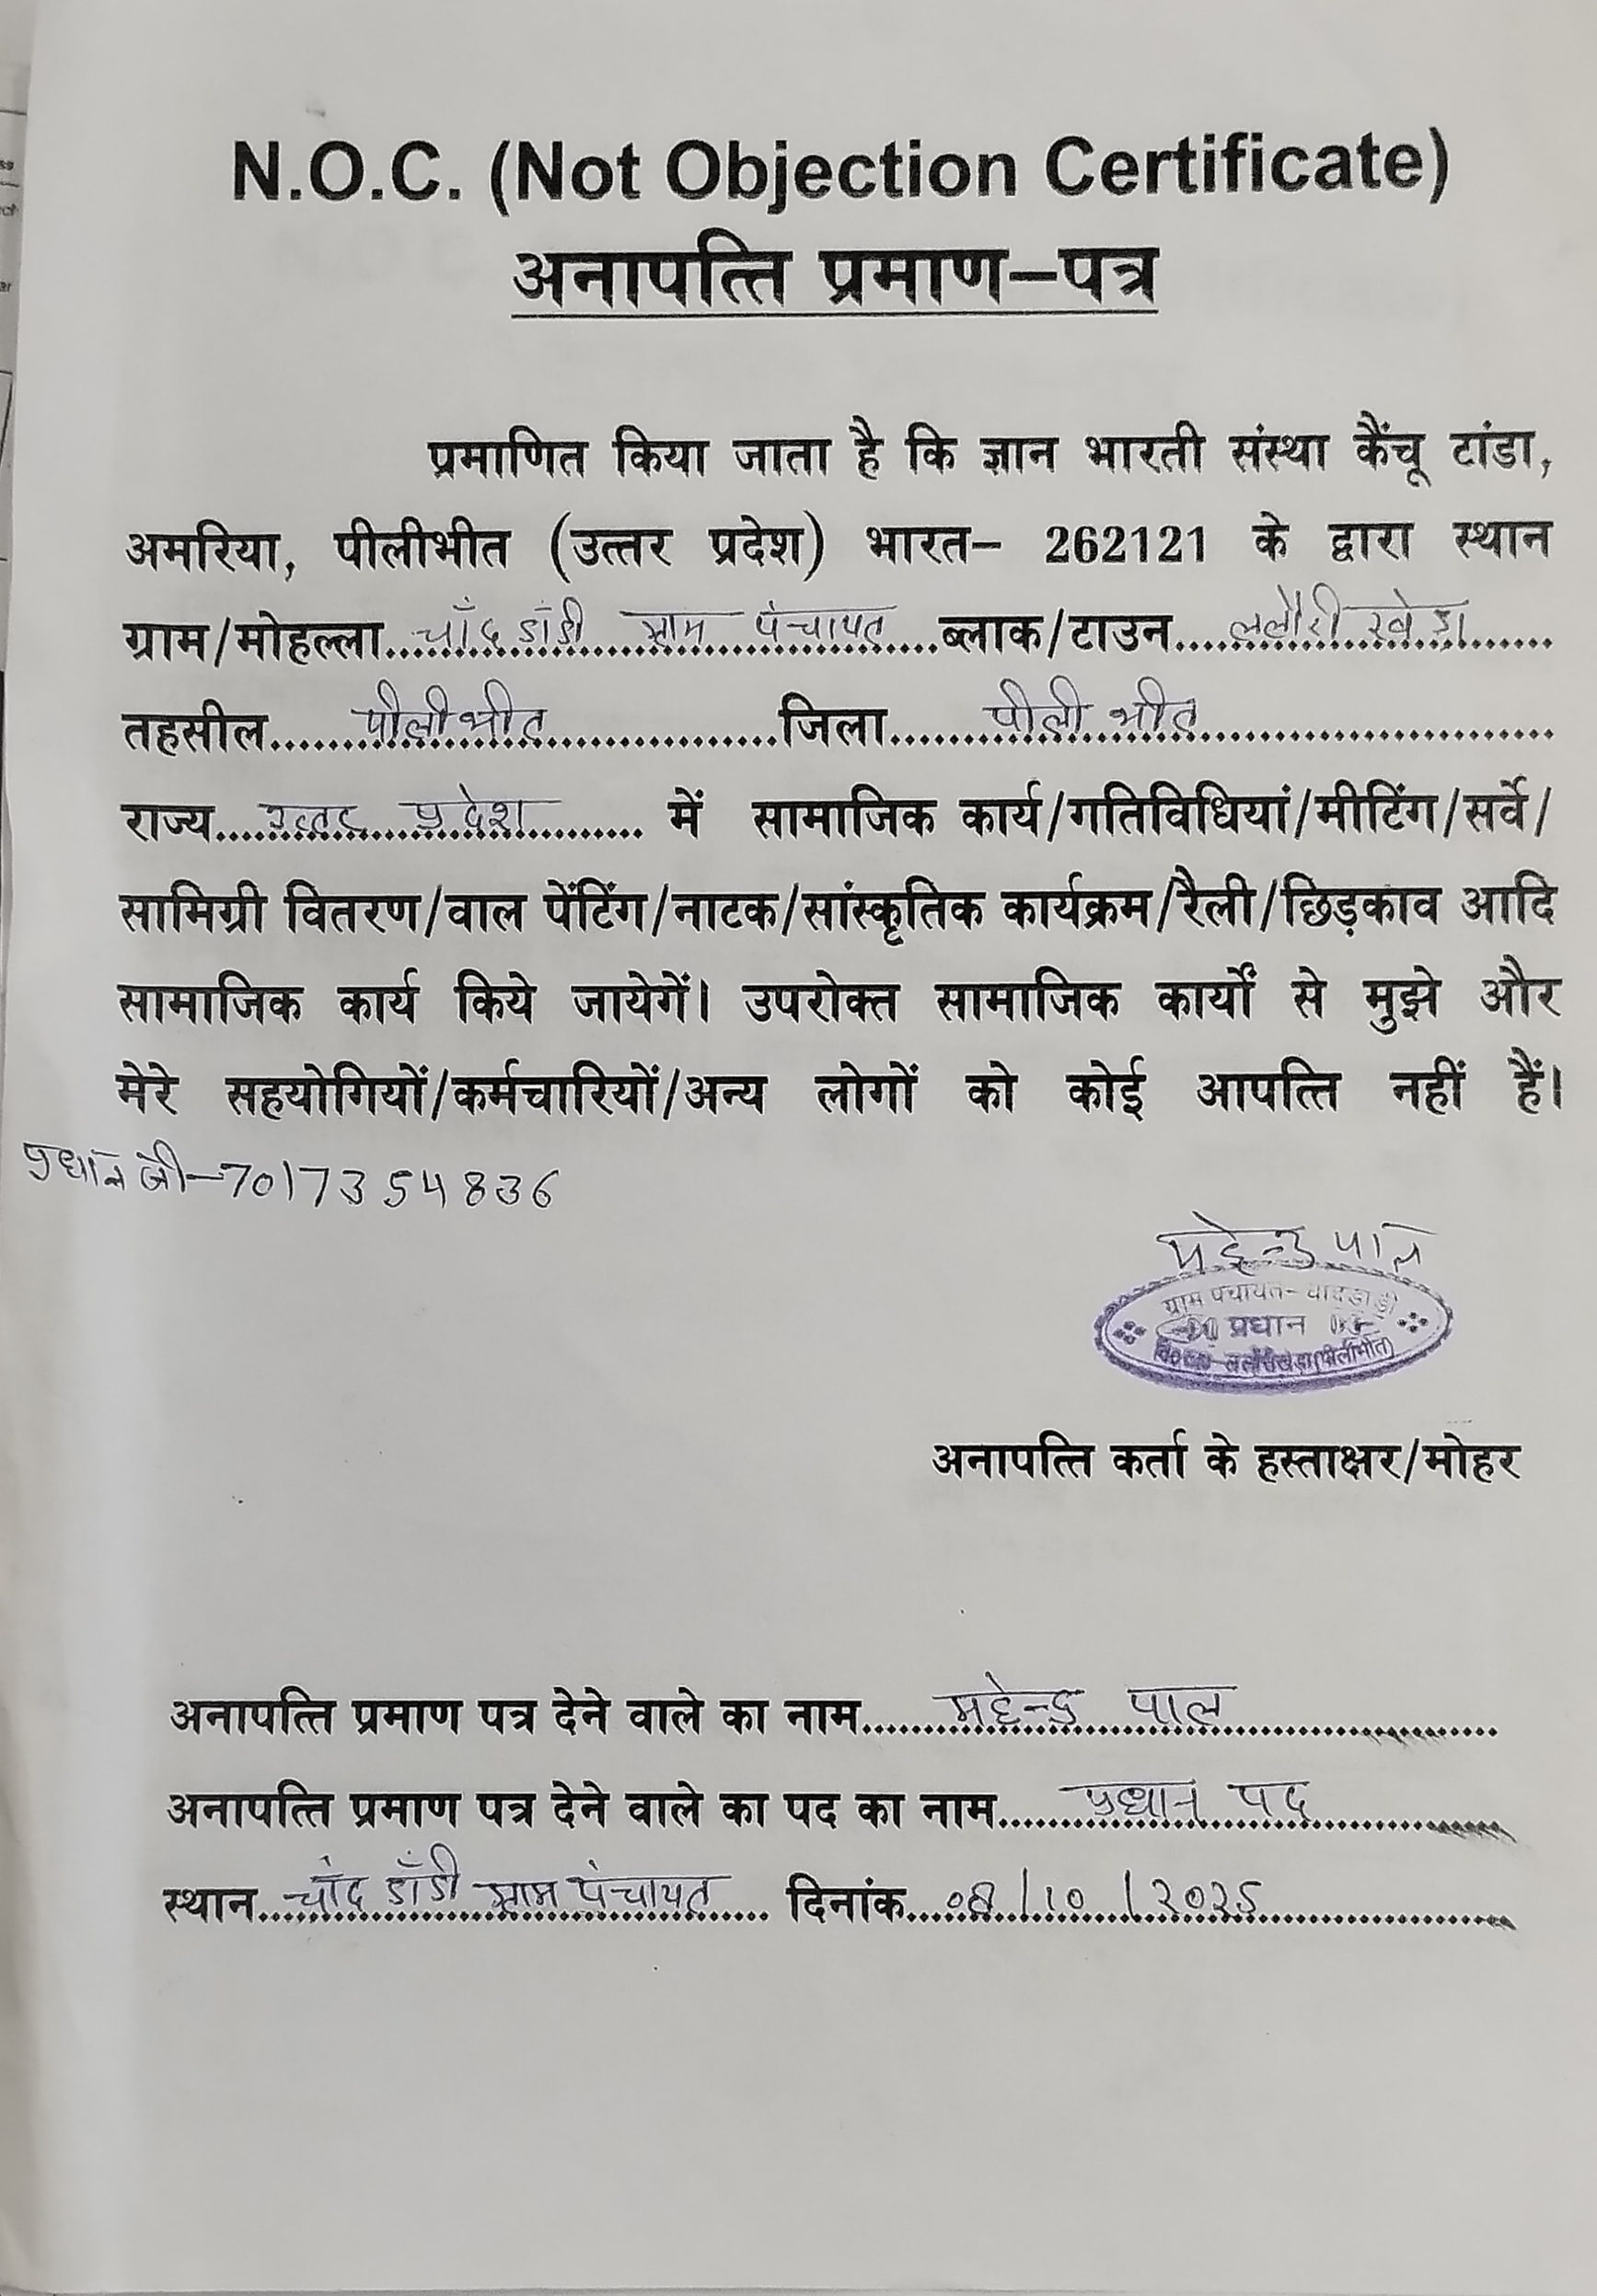 N.O.C. (Not Objection Certificate)
अनापत्ति प्रमाण–पत्र
प्रमाणित किया जाता है कि ज्ञान भारती संस्था कैंचू टांडा,
अमरिया, पीलीभीत (उत्तर प्रदेश) भारत– 262121 के द्वारा स्थान
ग्राम/मोहल्ला चाँद डांडी ग्राम पंचायत ब्लाक/टाउन ललौरी खेड़ा
तहसील पीलीभीत जिला पीलीभीत
राज्य उत्तर प्रदेश में सामाजिक कार्य/गतिविधियां/मीटिंग/सर्वे/
सामिग्री वितरण/वाल पेंटिंग/नाटक/सांस्कृतिक कार्यक्रम/रैली/छिड़काव आदि
सामाजिक कार्य किये जायेगें। उपरोक्त सामाजिक कार्यों से मुझे और
मेरे सहयोगियों/कर्मचारियों/अन्य लोगों को कोई आपत्ति नहीं हैं।
प्रधान जी–7017354836
महेन्द्र पाल
ग्राम पंचायत– चांदडांडी
प्रधान
ललौरीखेड़ा (पीलीभीत)
अनापत्ति कर्ता के हस्ताक्षर/मोहर
अनापत्ति प्रमाण पत्र देने वाले का नाम महेन्द्र पाल
अनापत्ति प्रमाण पत्र देने वाले का पद का नाम प्रधान पद
स्थान चांद डाँडी ग्राम पंचायत दिनांक 08/10/2025